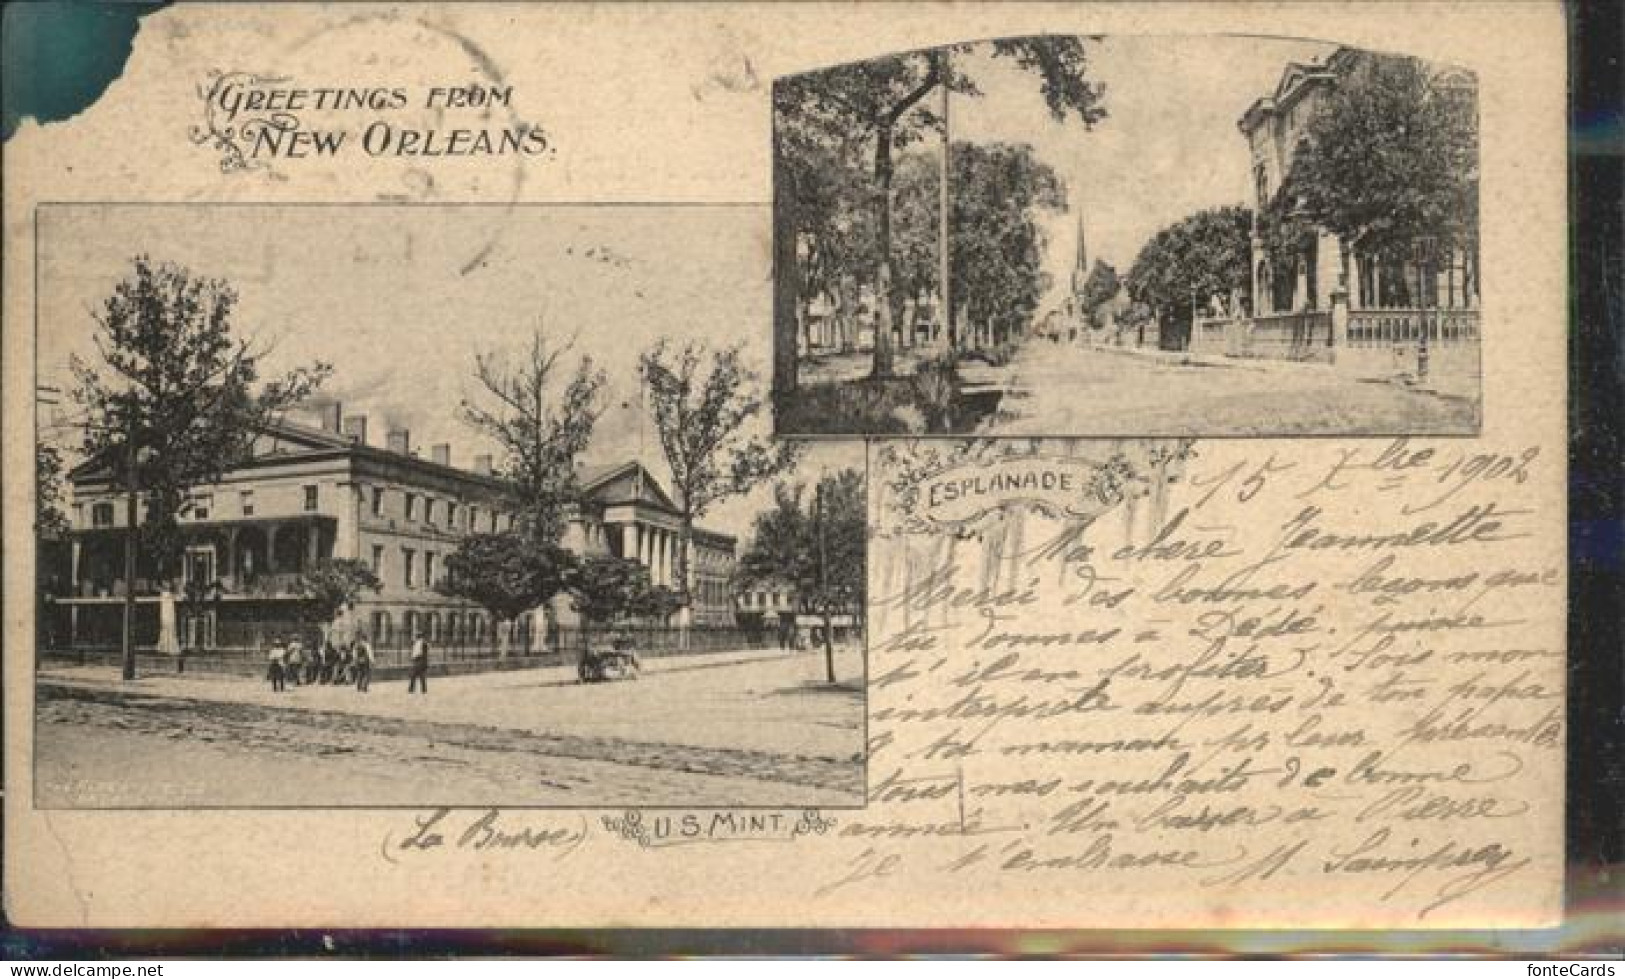 GREETINGS FROM
NEW ORLEANS.
ESPLANADE
15 Xbre 1902
Ma chère Jeannette
Merci des bonnes leçons que
tu donnes à Dédé. puisse
t'il en profiter. Sois mon
interprète auprès de ton papa
& ta maman pr leur présenter
tous mes souhaits de bonne
année. Un baiser à Pierre
je t'embrasse M.
(La Bourse)
U.S. MINT.
www.delcampe.net
fonteCards